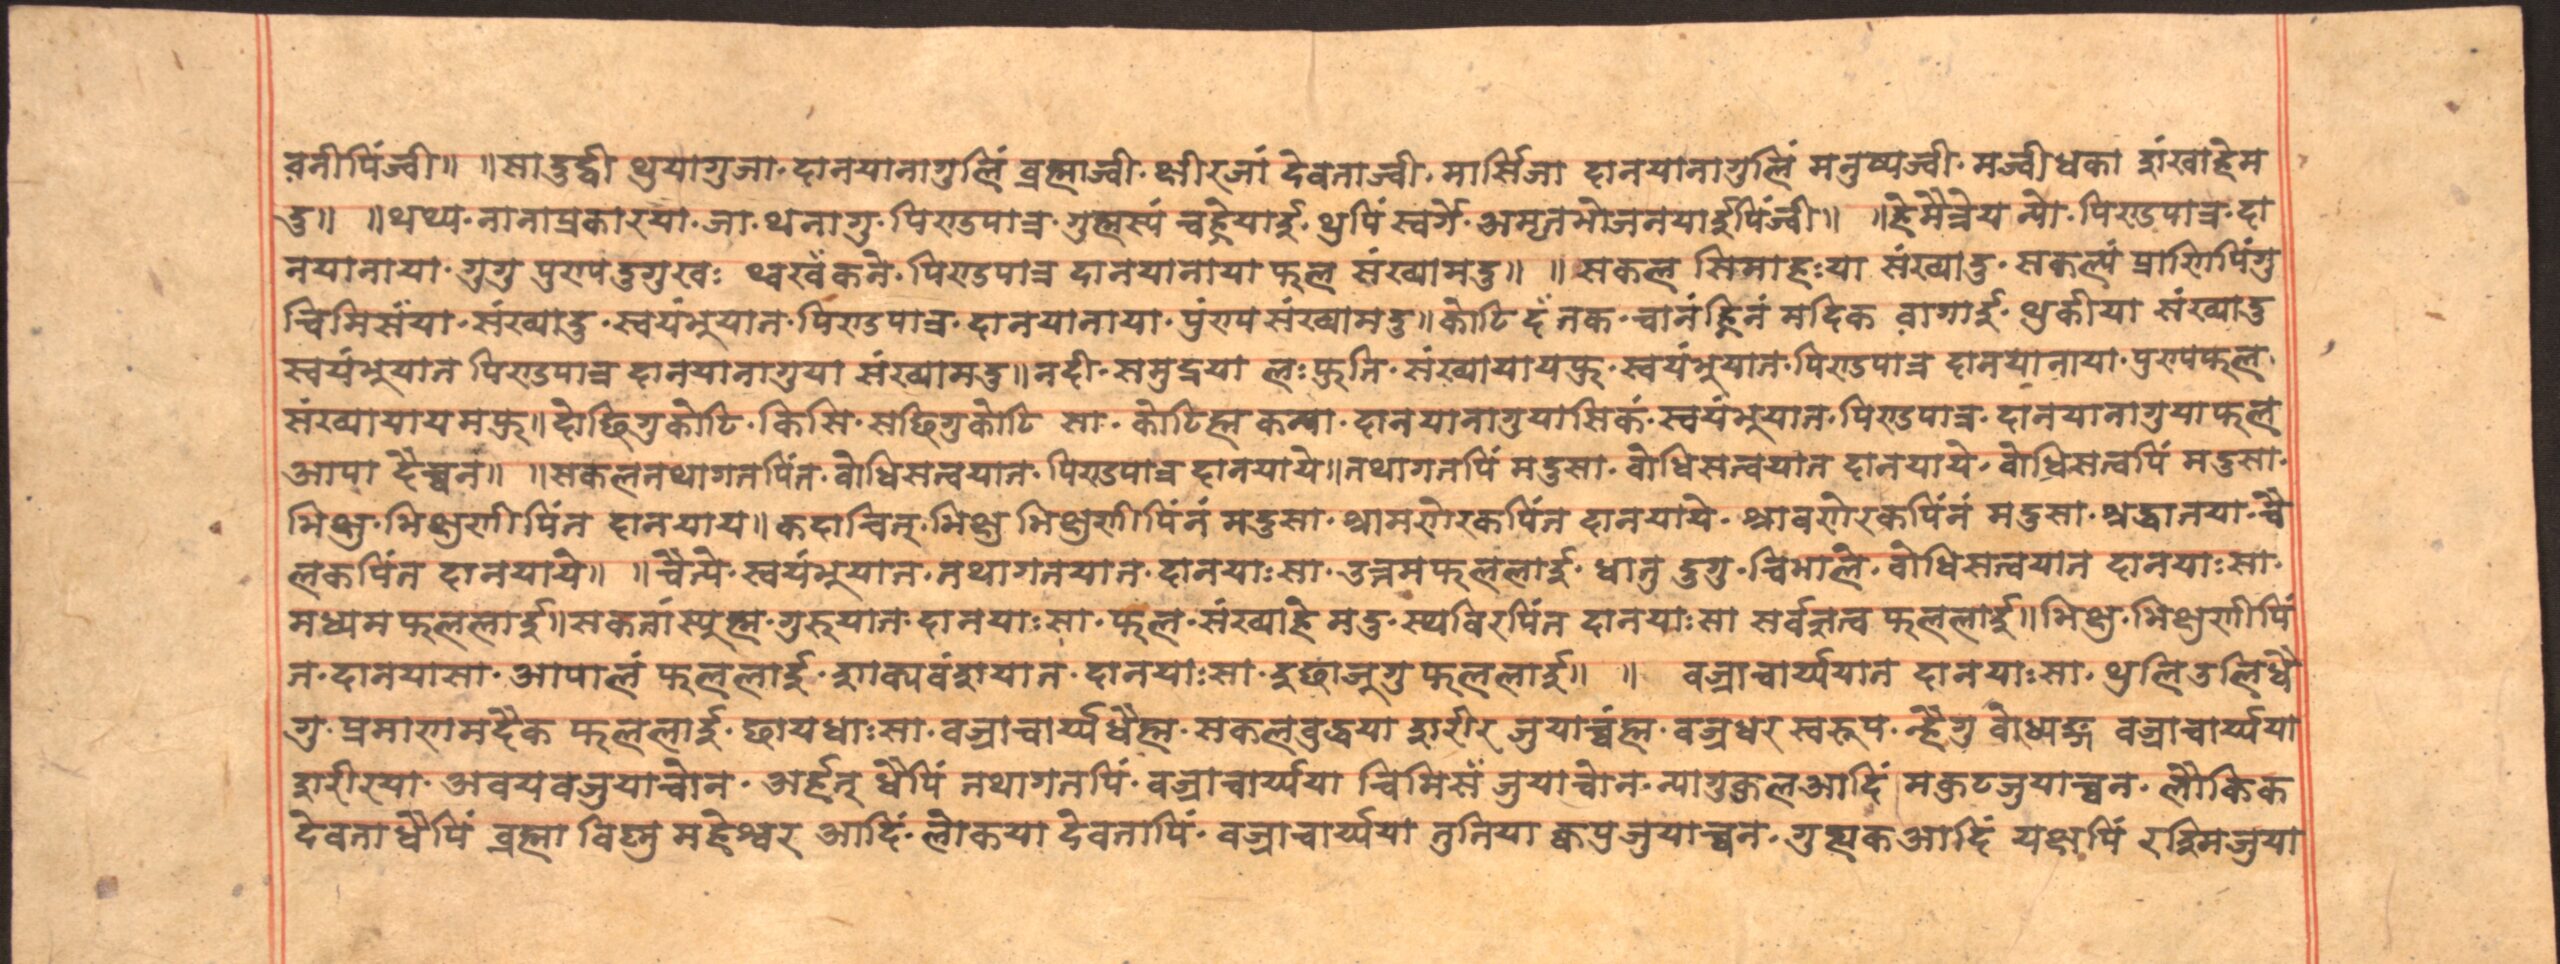 वनीपिंज्वी॥ ॥सादुर्द्वी थुयागुजा॰दानयानागुलिं ब्रह्माज्वी॰क्षीरजां देवताज्वी॰मार्सिजा दानयानागुलिं मनुष्यज्वी॰मज्वीधका शंखाहेम
दु॥ ॥थथ्य॰नानाप्रकारया॰जा॰थनागु॰पिण्डपात्र॰गुह्मस्यं चहेयाई॰थुपिं स्वर्गे॰अमृतभोजनयाईपिंज्वी॥ ॥हेमैत्रेय त्यो॰पिण्डपात्र॰दा
नयानाया॰गुगु पुण्यदुगुखः थ्वखँकने॰पिण्डपात्र दानयानाया फल संख्यामदु॥ ॥सकल सिमाहःया संख्यादु॰सकल्यं प्राणिपिंगु
चिमिसँया॰संख्यादु॰स्वयंभुयात॰पिण्डपात्र॰दानयानाया॰पुंण्य संख्यामदु॥कोटि दँ तक॰चानंह्निनं मदिक वागाई॰थुकीया संख्यादु
स्वयंभुयात पिण्डपात्र दानयानागुया संख्यामदु॥नदी॰समुद्रया लःफुति॰संख्यायायफु॰स्वयंभुयात॰पिण्डपात्र दानयानाया॰पुण्यफल
संख्यायायमफु॥दोछिगुकोटि॰किसि॰सछिगुकोटि सा॰कोटिह्म कन्या॰दानयानागुयासिकं॰स्वयंभुयात॰पिण्डपात्र॰दानयानागुयाफल
आपा दैच्वन॥ ॥सकलतथागतपिंत॰बोधिसत्वयात॰पिण्डपात्र दानयाये॥तथागतपिं मदुसा॰बोधिसत्वयात दानयाये॰बोधिसत्वपिं मदुसा॰
भिक्षु॰भिक्षुणीपिंत दानयाय॥कदाचित्॰भिक्षु भिक्षुणीपिंनं मदुसा॰श्रामणेरकपिंत दानयाये॰श्रावणेरकपिंनं मदुसा॰श्रद्धानया॰चै
लकपिंत दानयाये॥ ॥चैत्ये॰स्वयंभुयात॰तथागतयात॰दानयाःसा॰उत्तमफललाई॰धातु दुगु॰चिभाले॰बोधिसत्वयात दानयाःसा॰
मध्यमफललाई॥सकतांस्यूह्म॰गुरुयात॰दानयाःसा॰फल॰संख्याहे मदु॰स्थविरपिंत दानयाःसा सर्वज्ञत्व फललाई॥भिक्षु॰भिक्षुणीपिं
त॰दानयासा॰आपालं फललाई॰शाक्यवंशयात॰दानयाःसा॰दुछाजुगु फललाई॥ ॥ वज्राचार्य्ययात दानयाःसा॰थुलिउलिधै
गु॰प्रमाणमदैक फललाई॰छायधाःसा॰वज्राचार्य्यधैह्म॰सकलबुद्धया शरीर जुयाच्वंह्म॰वज्रधर स्वरूप॰न्हैगु बोध्यङ्ग वज्राचार्य्यया
शरीरया॰अवयवजुयाचोन॰अर्हत् धैपिं तथागतपिं॰वज्राचार्य्यया चिमिसँ जुयाचोन॰न्यागुकुलआदिं मकुटजुयाच्वन॰लौकिक
देवताधैपिं ब्रह्मा विष्णु महेश्वर आदिं॰लोकया देवतापिं॰वज्राचार्य्यया तुतिया क्वपुजुयाच्वन॰गुह्यकआदिं यक्षपिं रश्मिजुया